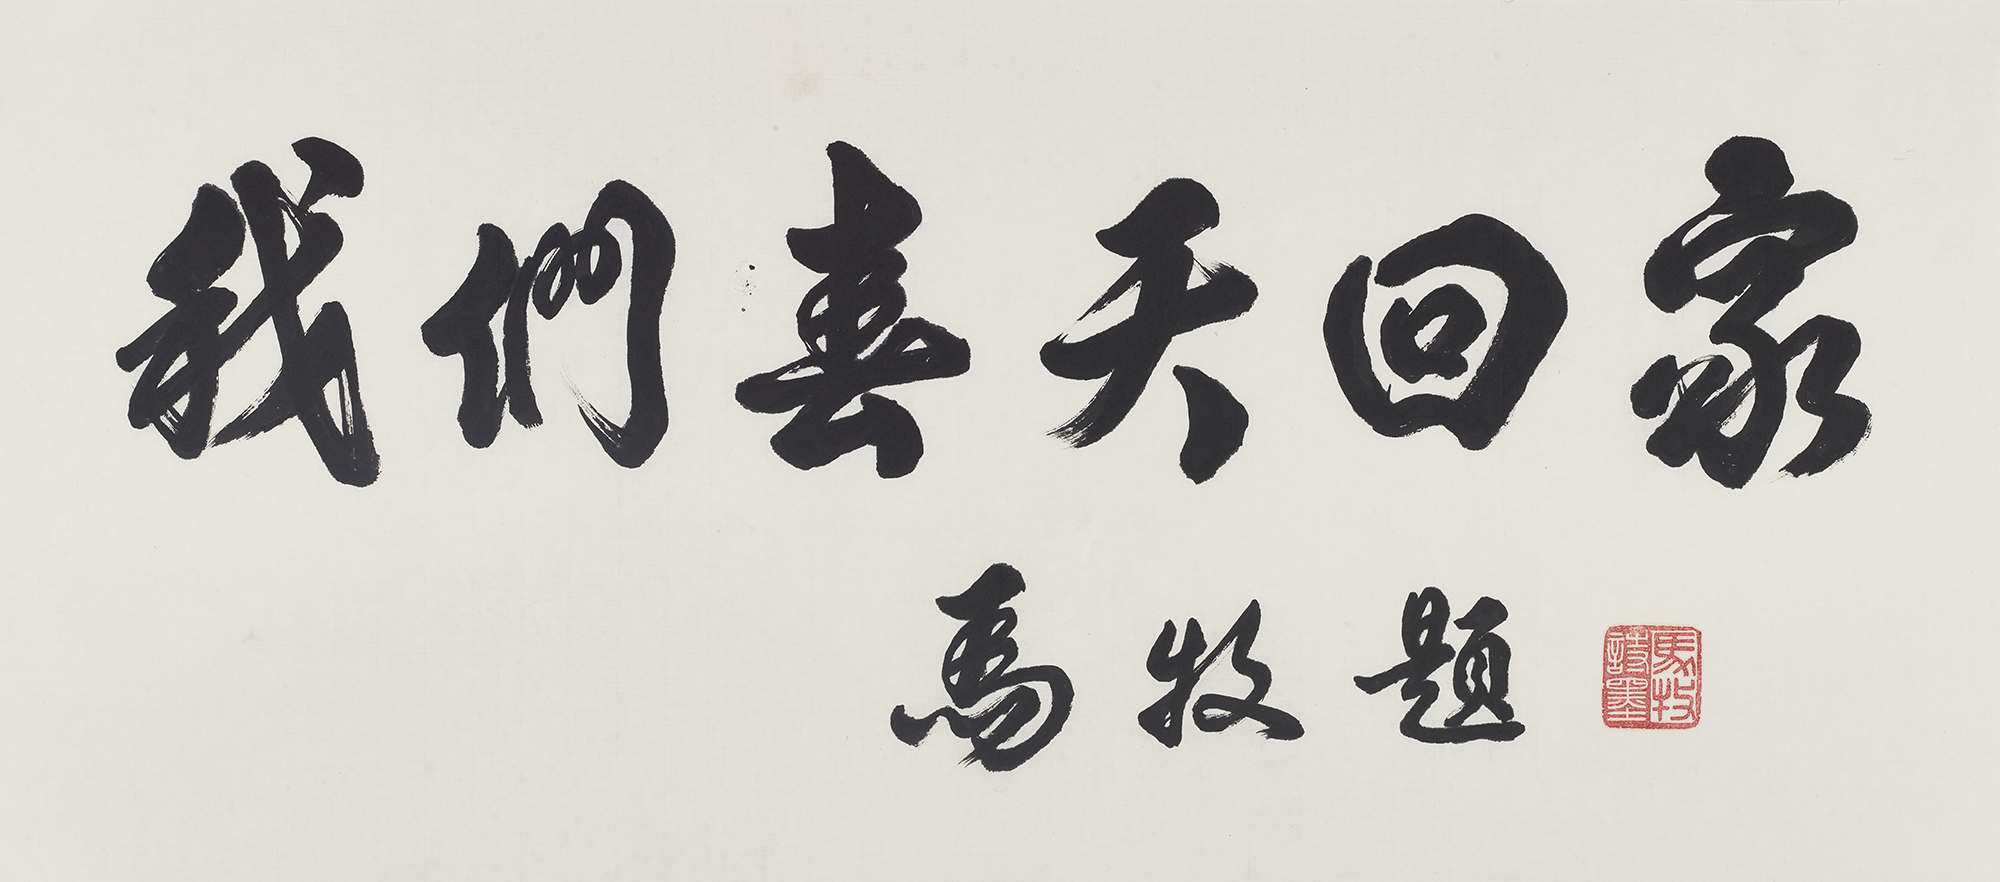 我們春天回家
馬牧題
馬牧詩墨